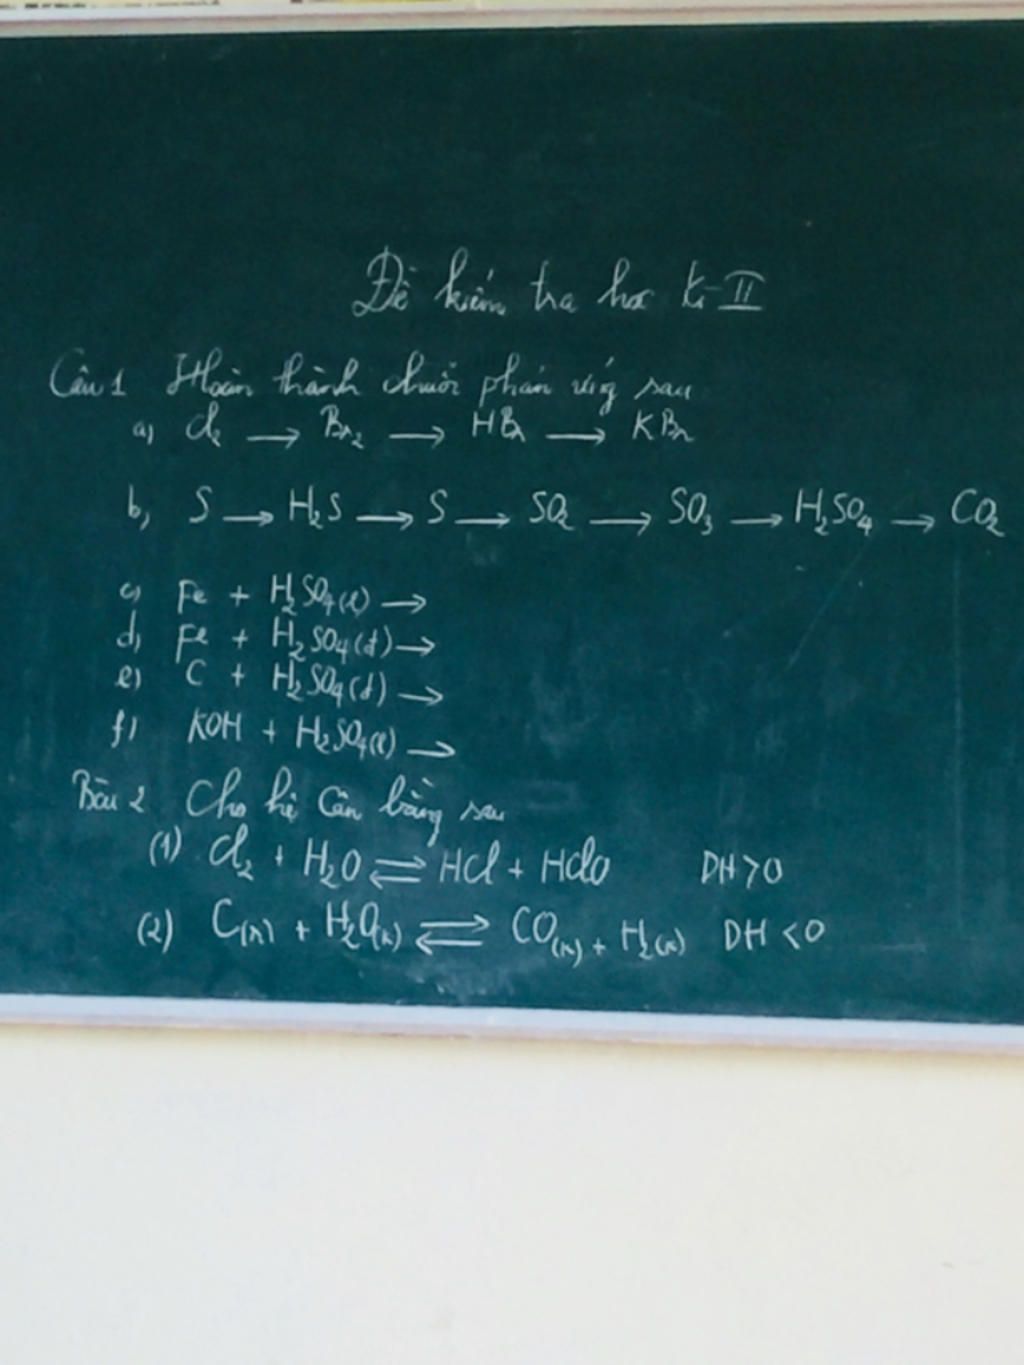 Đề kiểm tra học kì II
Câu 1 Hoàn thành chuỗi phản ứng sau
a) Cl₂ → Br₂ → HBr → KBr
b, S → H₂S → S → SO₂ → SO₃ → H₂SO₄ → CO₂
c) Fe + H₂SO₄(l) →
d) Fe + H₂SO₄(đ) →
e) C + H₂SO₄(đ) →
f) KOH + H₂SO₄(l) →
Bài 2 Cho hệ cân bằng sau
(1) Cl₂ + H₂O ⇌ HCl + HClO DH > 0
(2) C(r) + H₂O(k) ⇌ CO(k) + H₂(k) DH < 0